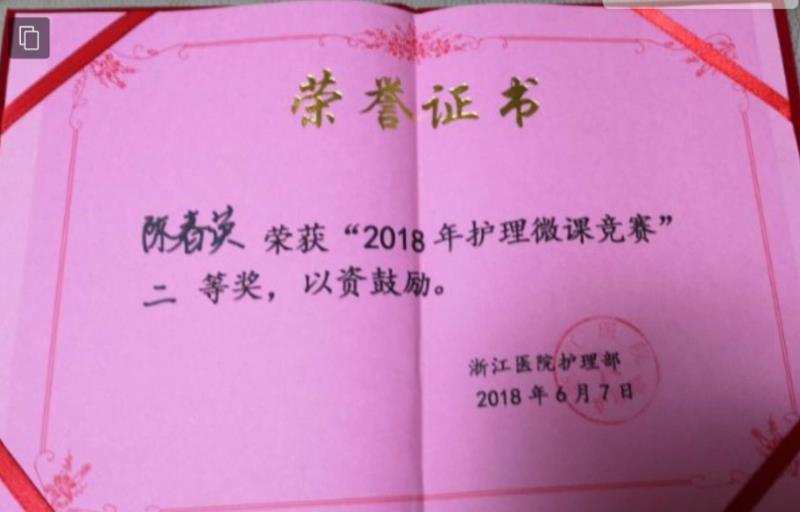 荣誉证书
陈春英 荣获“2018年护理微课竞赛”
二 等奖，以资鼓励。
浙江医院护理部
2018年6月7日